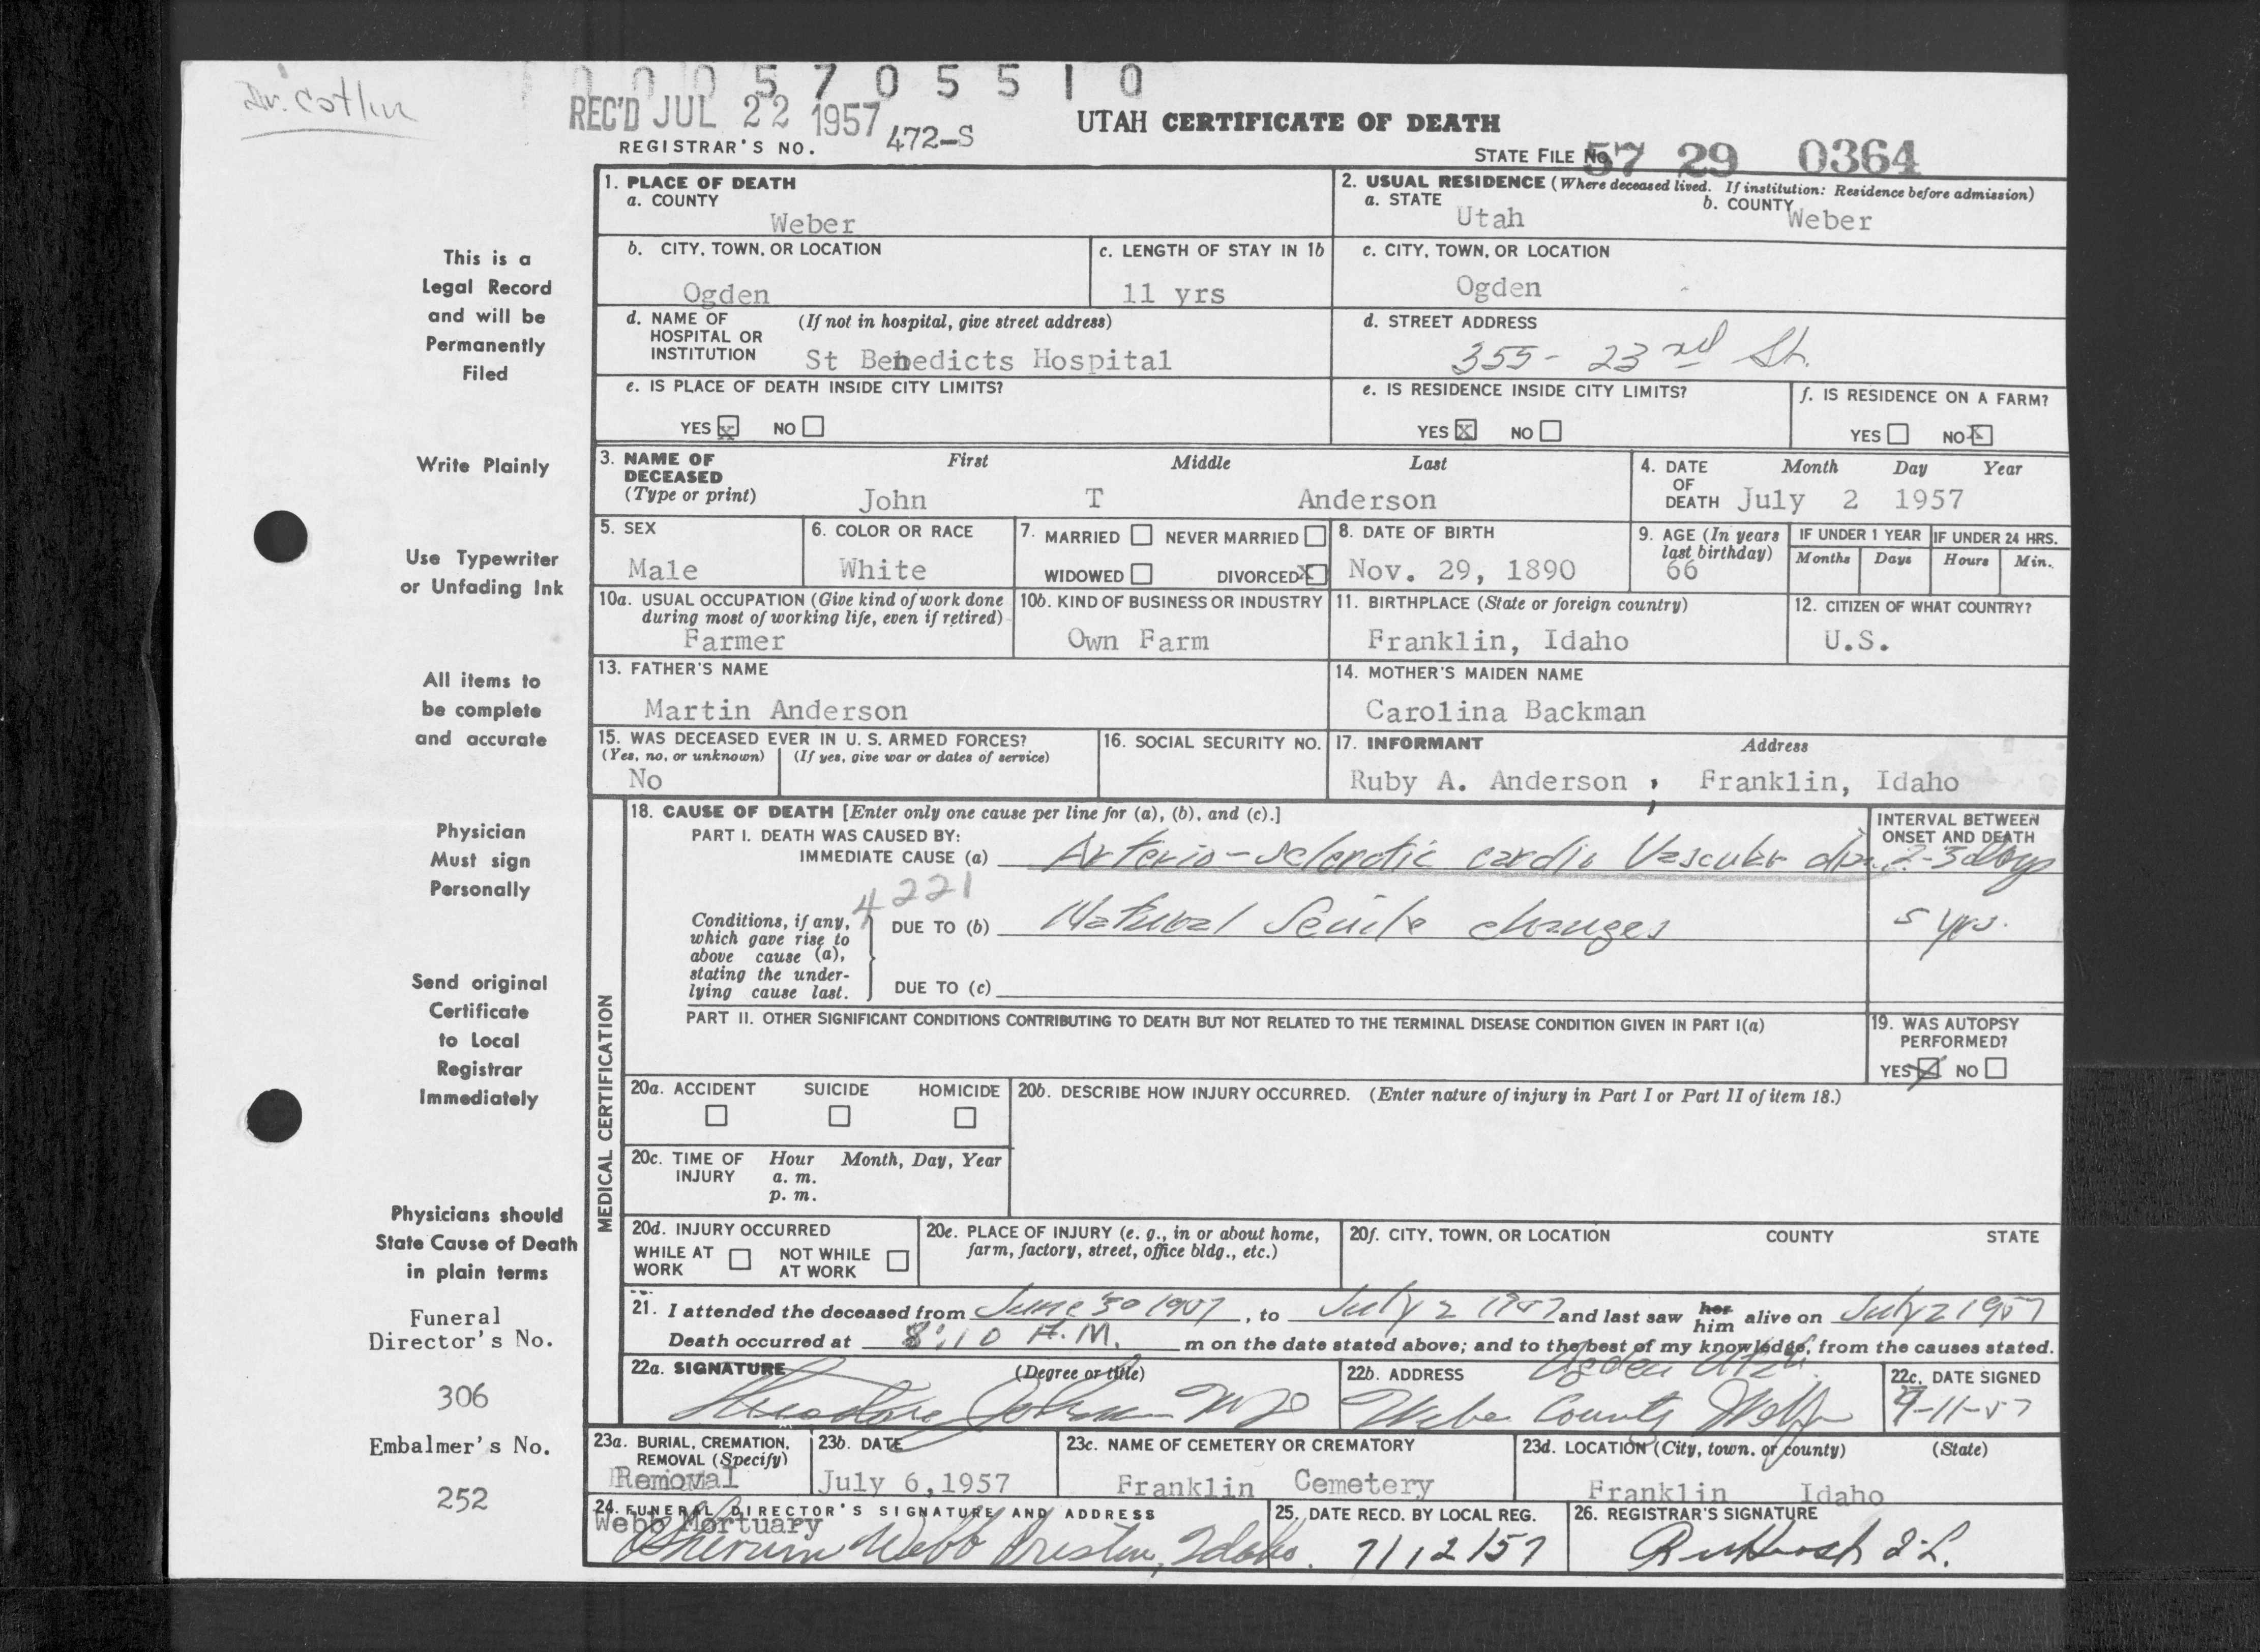 Dr. Cotlin
0 0 0 5 7 0 5 5 1 0
REC'D JUL 22 1957
REGISTRAR'S NO. 472-S
UTAH CERTIFICATE OF DEATH
STATE FILE No. 57 29 0364
This is a
Legal Record
and will be
Permanently
Filed
Write Plainly
Use Typewriter
or Unfading Ink
All items to
be complete
and accurate
Physician
Must sign
Personally
Send original
Certificate
to Local
Registrar
Immediately
Physicians should
State Cause of Death
in plain terms
Funeral
Director's No.
306
Embalmer's No.
252
1. PLACE OF DEATH
a. COUNTY
Weber
2. USUAL RESIDENCE (Where deceased lived. If institution: Residence before admission)
a. STATE b. COUNTY
Utah Weber
b. CITY, TOWN, OR LOCATION
Ogden
c. LENGTH OF STAY IN 1b
11 yrs
c. CITY, TOWN, OR LOCATION
Ogden
d. NAME OF (If not in hospital, give street address)
HOSPITAL OR
INSTITUTION St Benedicts Hospital
d. STREET ADDRESS
355- 23rd St.
e. IS PLACE OF DEATH INSIDE CITY LIMITS?
YES X NO
e. IS RESIDENCE INSIDE CITY LIMITS?
YES X NO
f. IS RESIDENCE ON A FARM?
YES NO X
3. NAME OF First Middle Last
DECEASED
(Type or print) John T Anderson
4. DATE Month Day Year
OF
DEATH July 2 1957
5. SEX
Male
6. COLOR OR RACE
White
7. MARRIED NEVER MARRIED
WIDOWED DIVORCED X
8. DATE OF BIRTH
Nov. 29, 1890
9. AGE (In years
last birthday)
66
IF UNDER 1 YEAR IF UNDER 24 HRS.
Months Days Hours Min.
10a. USUAL OCCUPATION (Give kind of work done
during most of working life, even if retired)
Farmer
10b. KIND OF BUSINESS OR INDUSTRY
Own Farm
11. BIRTHPLACE (State or foreign country)
Franklin, Idaho
12. CITIZEN OF WHAT COUNTRY?
U.S.
13. FATHER'S NAME
Martin Anderson
14. MOTHER'S MAIDEN NAME
Carolina Backman
15. WAS DECEASED EVER IN U. S. ARMED FORCES?
(Yes, no, or unknown) (If yes, give war or dates of service)
No
16. SOCIAL SECURITY NO.
17. INFORMANT Address
Ruby A. Anderson , Franklin, Idaho
MEDICAL CERTIFICATION
18. CAUSE OF DEATH [Enter only one cause per line for (a), (b), and (c).]
PART I. DEATH WAS CAUSED BY:
IMMEDIATE CAUSE (a) Arterio-sclerotic cardio Vascular dis.
INTERVAL BETWEEN
ONSET AND DEATH
2-3 days
4221
Conditions, if any,
which gave rise to
above cause (a),
stating the under-
lying cause last.
DUE TO (b) Natural Senile changes 5 yrs.
DUE TO (c)
PART II. OTHER SIGNIFICANT CONDITIONS CONTRIBUTING TO DEATH BUT NOT RELATED TO THE TERMINAL DISEASE CONDITION GIVEN IN PART I(a)
19. WAS AUTOPSY
PERFORMED?
YES X NO
20a. ACCIDENT SUICIDE HOMICIDE
20b. DESCRIBE HOW INJURY OCCURRED. (Enter nature of injury in Part I or Part II of item 18.)
20c. TIME OF Hour Month, Day, Year
INJURY a. m.
p. m.
20d. INJURY OCCURRED
WHILE AT NOT WHILE
WORK AT WORK
20e. PLACE OF INJURY (e. g., in or about home,
farm, factory, street, office bldg., etc.)
20f. CITY, TOWN, OR LOCATION COUNTY STATE
21. I attended the deceased from June 30 1957, to July 2 1957 and last saw her him alive on July 2 1957
Death occurred at 8:10 A.M. m on the date stated above; and to the best of my knowledge, from the causes stated.
22a. SIGNATURE (Degree or title)
Theodore MD
22b. ADDRESS Ogden Utah
Weber County
22c. DATE SIGNED
9-11-57
23a. BURIAL, CREMATION,
REMOVAL (Specify)
Removal
23b. DATE
July 6,1957
23c. NAME OF CEMETERY OR CREMATORY
Franklin Cemetery
23d. LOCATION (City, town, or county) (State)
Franklin Idaho
24. FUNERAL DIRECTOR'S SIGNATURE AND ADDRESS
Webb Mortuary
Webb Preston, Idaho.
25. DATE RECD. BY LOCAL REG.
7/12/57
26. REGISTRAR'S SIGNATURE